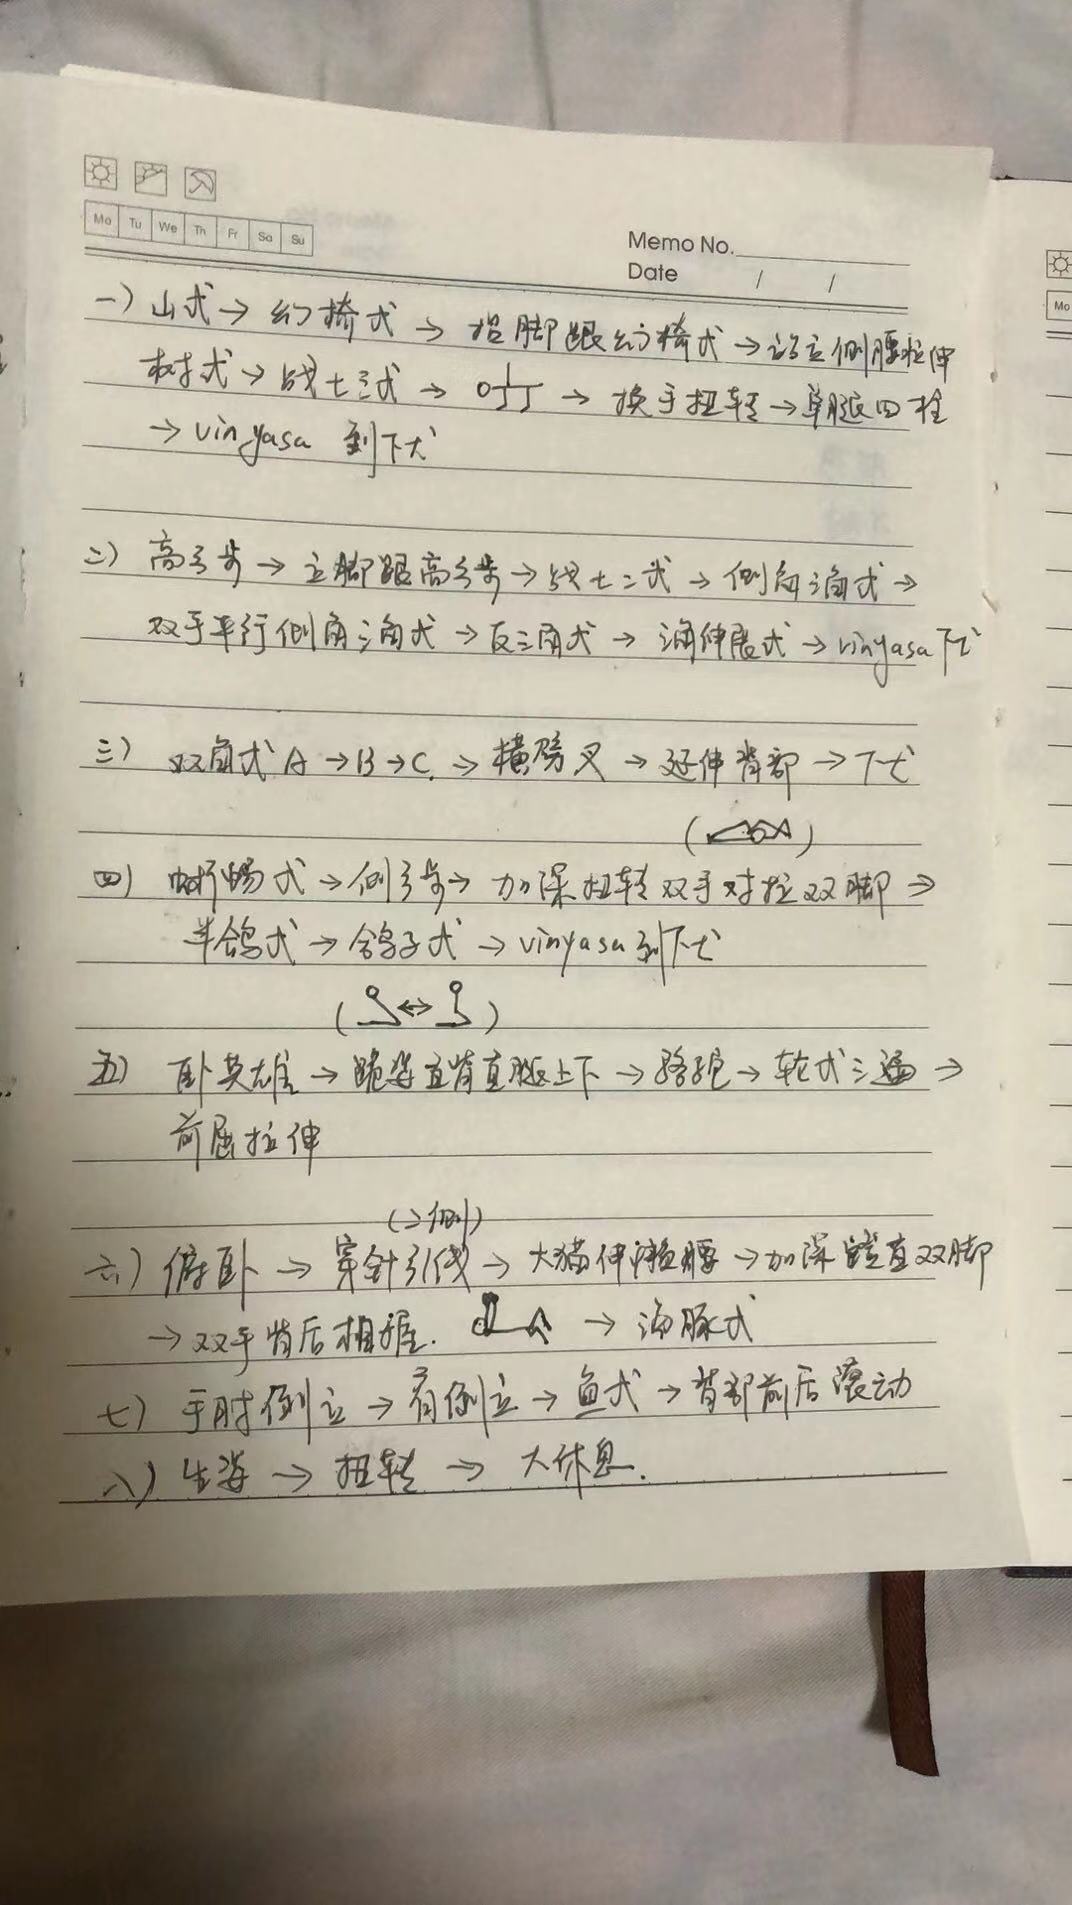 Mo Tu We Th Fr Sa Su
Memo No.
Date / /
Mo
一) 山式→幻椅式→抬脚跟幻椅式→站立侧腰拉伸
树式→战士三式→ →换手扭转→单腿四柱
→vinyasa 到下犬
二) 高弓步→立脚跟高弓步→战士二式→侧角三角式→
双手平行侧角三角式→反三角式→三角伸展式→vinyasa下犬
三) 双角式A→B→C→横劈叉→延伸背部→下犬
( )
四) 蜥蜴式→侧弓步→加深扭转双手对拉双脚→
半鸽式→鸽子式→vinyasa到下犬
( ↔ )
五) 卧英雄→跪姿直背直腿上下→骆驼→轮式三遍→
前屈拉伸
(二侧)
六) 俯卧→穿针引线→大猫伸懒腰→加深蹬直双脚
→双手背后相握. →海豚式
七) 手肘倒立→肩倒立→鱼式→背部前后滚动
八) 坐姿→扭转→大休息.